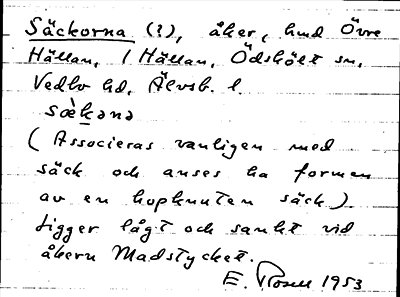 Säckorna (?), åker, hmd Övre
Hällan, / Hällan, Ödskölt sn,
Vedbo hd, Älvsb. l.
sæ̀kənə
(Associeras vanligen med
säck och anses ha formen
av en hopknuten säck).
Ligger lågt och sankt vid
åkern Madstycket.
E. Rosell 1953